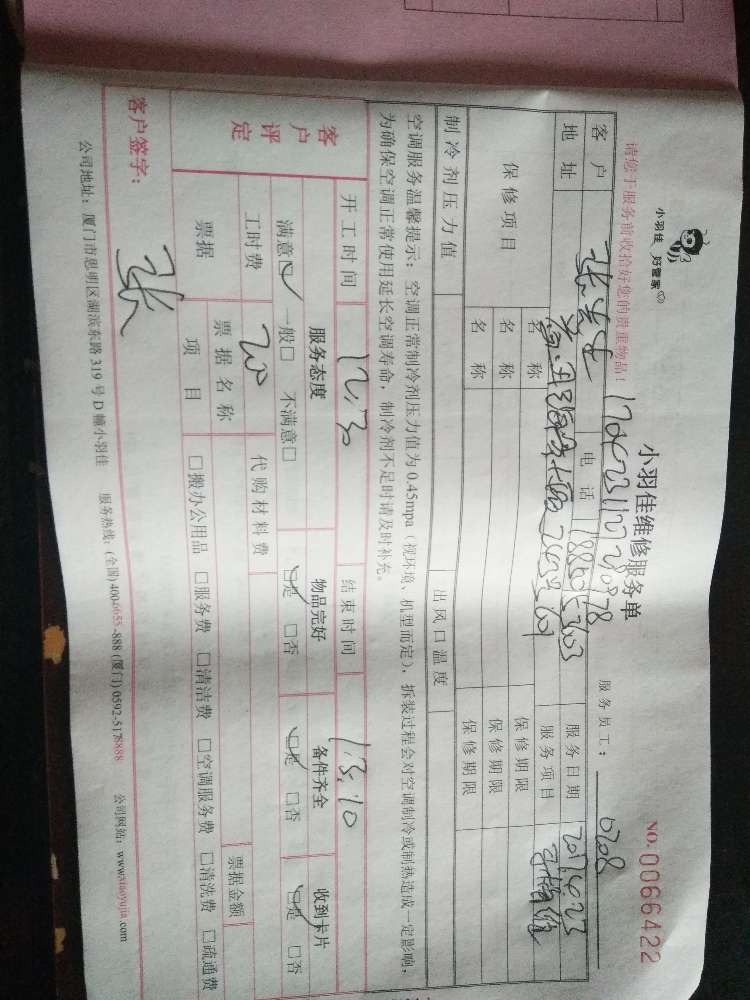 小羽佳 好管家
小羽佳维修服务单
NO:0066422
请您于服务前收拾好您的贵重物品!
服务员工: 0708
客户 电话 服务日期
地址 服务项目
保修项目 名称 保修期限
名称 保修期限
名称 保修期限
制冷剂压力值 出风口温度
空调服务温馨提示:空调正常制冷剂压力值为0.45mpa(视环境、机型而定),拆装过程会对空调制冷或制热造成一定影响,
为确保空调正常使用延长空调寿命,制冷剂不足时请及时补充。
开工时间 12.30 结束时间 13.10
客户评定 服务态度 物品完好 备件齐全 收到卡片
满意☑ 一般□ 不满意□ ☑是 □否 ☑是 □否 ☑是 □否
工时费 20 代购材料费
票据 票据名称 票据金额
项目 □搬办公用品 □服务费 □清洁费 □空调服务费 □清洗费 □疏通费
客户签字: 张
公司地址:厦门市思明区湖滨东路319号D幢小羽佳 服务热线:(全国)400-6055-888 (厦门)0592-5178888 公司网站:www.xiaoyujia.com